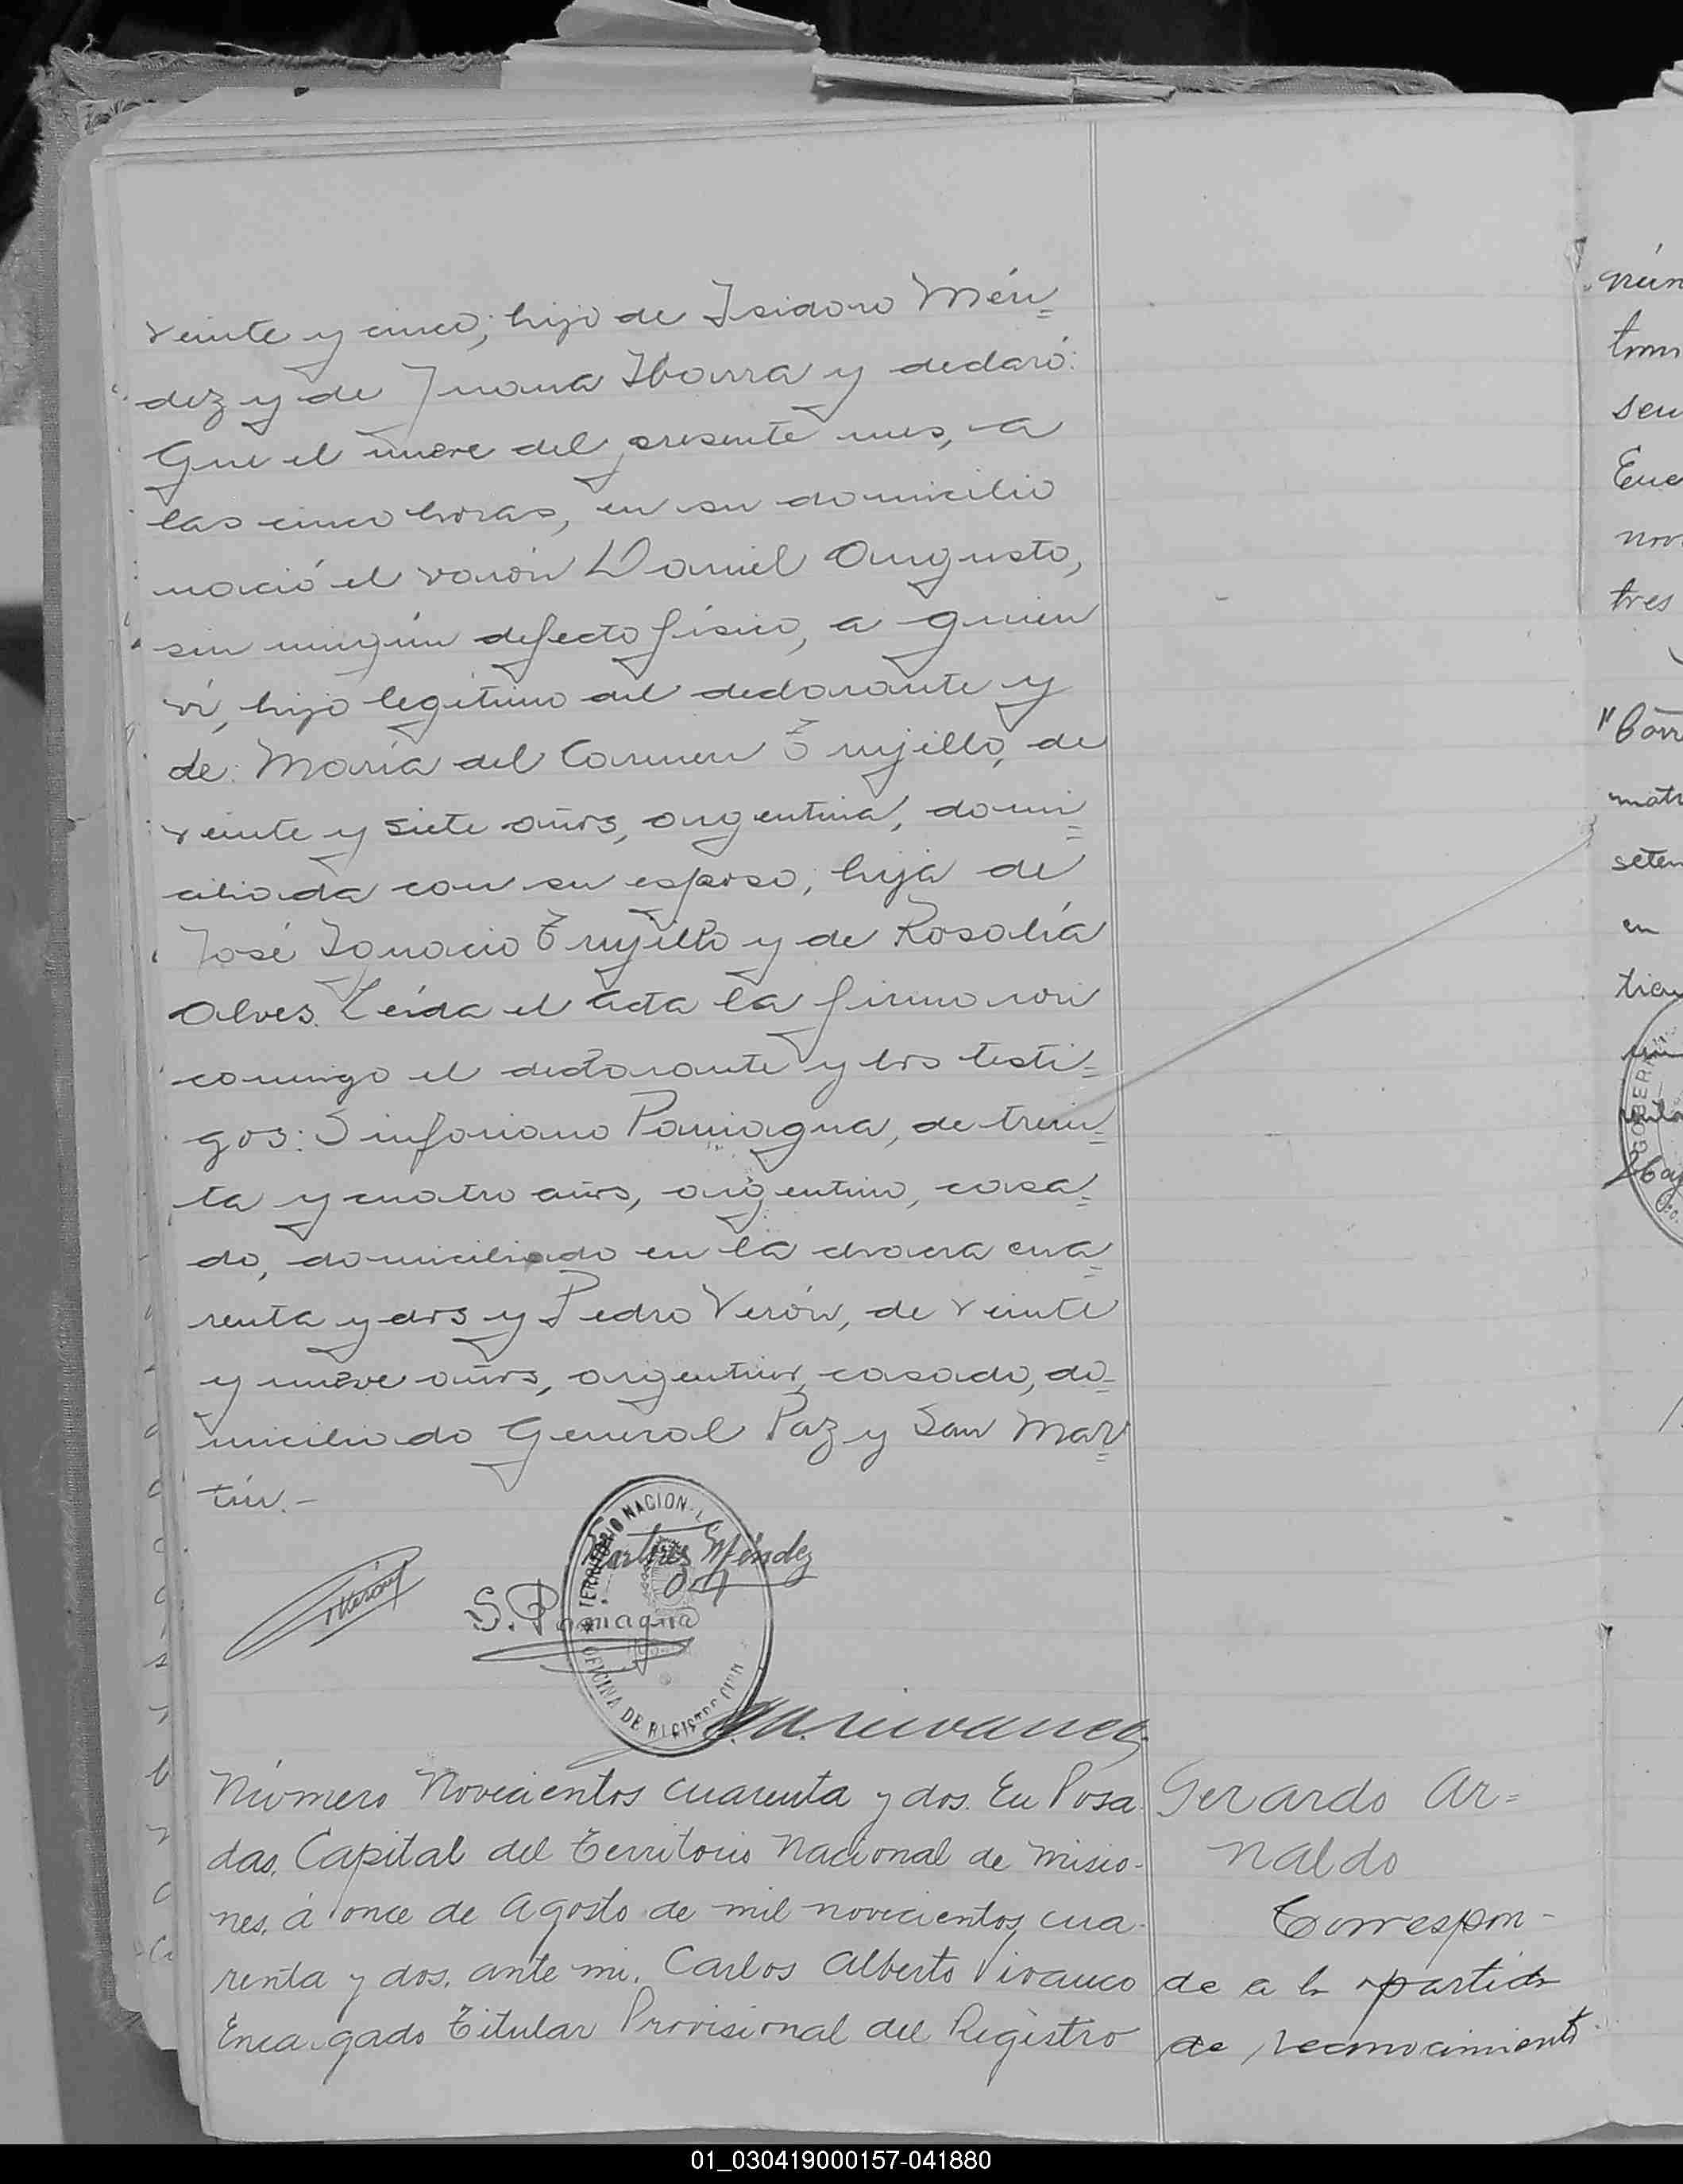 veinte y cinco; hijo de Isidoro Mén=
dez y de Juana Ibarra y declaró:
Que el nueve del presente mes, a
las cinco horas, en su domicilio
nació el varón Daniel Augusto,
sin ningún defecto físico, a quien
ví, hijo legítimo del declarante y
de María del Carmen Trujillo, de
veinte y siete años, argentina, domi=
ciliada con su esposo; hija de
José Ignacio Trujillo y de Rosalía
Alves. Leída el acta la firmaron
conmigo el declarante y los testi=
gos: Sinforiano Paniagua, de trein=
ta y cuatro años, argentino, casa=
do, domiciliado en la chacra cua=
renta y dos y Pedro Verón, de veinte
y nueve años, argentino, casado, do=
miciliado General Paz y San Mar=
tín.-
TERRITORIO NACIONAL
Méndez
S. Paniagua
OFICINA DE REGISTRO CIVIL
Número Novecientos cuarenta y dos. En Posa
das, Capital del Territorio Nacional de Misio-
nes, á once de Agosto de mil novecientos cua-
renta y dos, ante mi, Carlos Alberto Vivanco
Encargado Titular Provisional del Registro
Gerardo Ar=
naldo
Correspon-
de a la partida
de reconocimiento
núm
seten
en
tres
GOBER
01_030419000157-041880